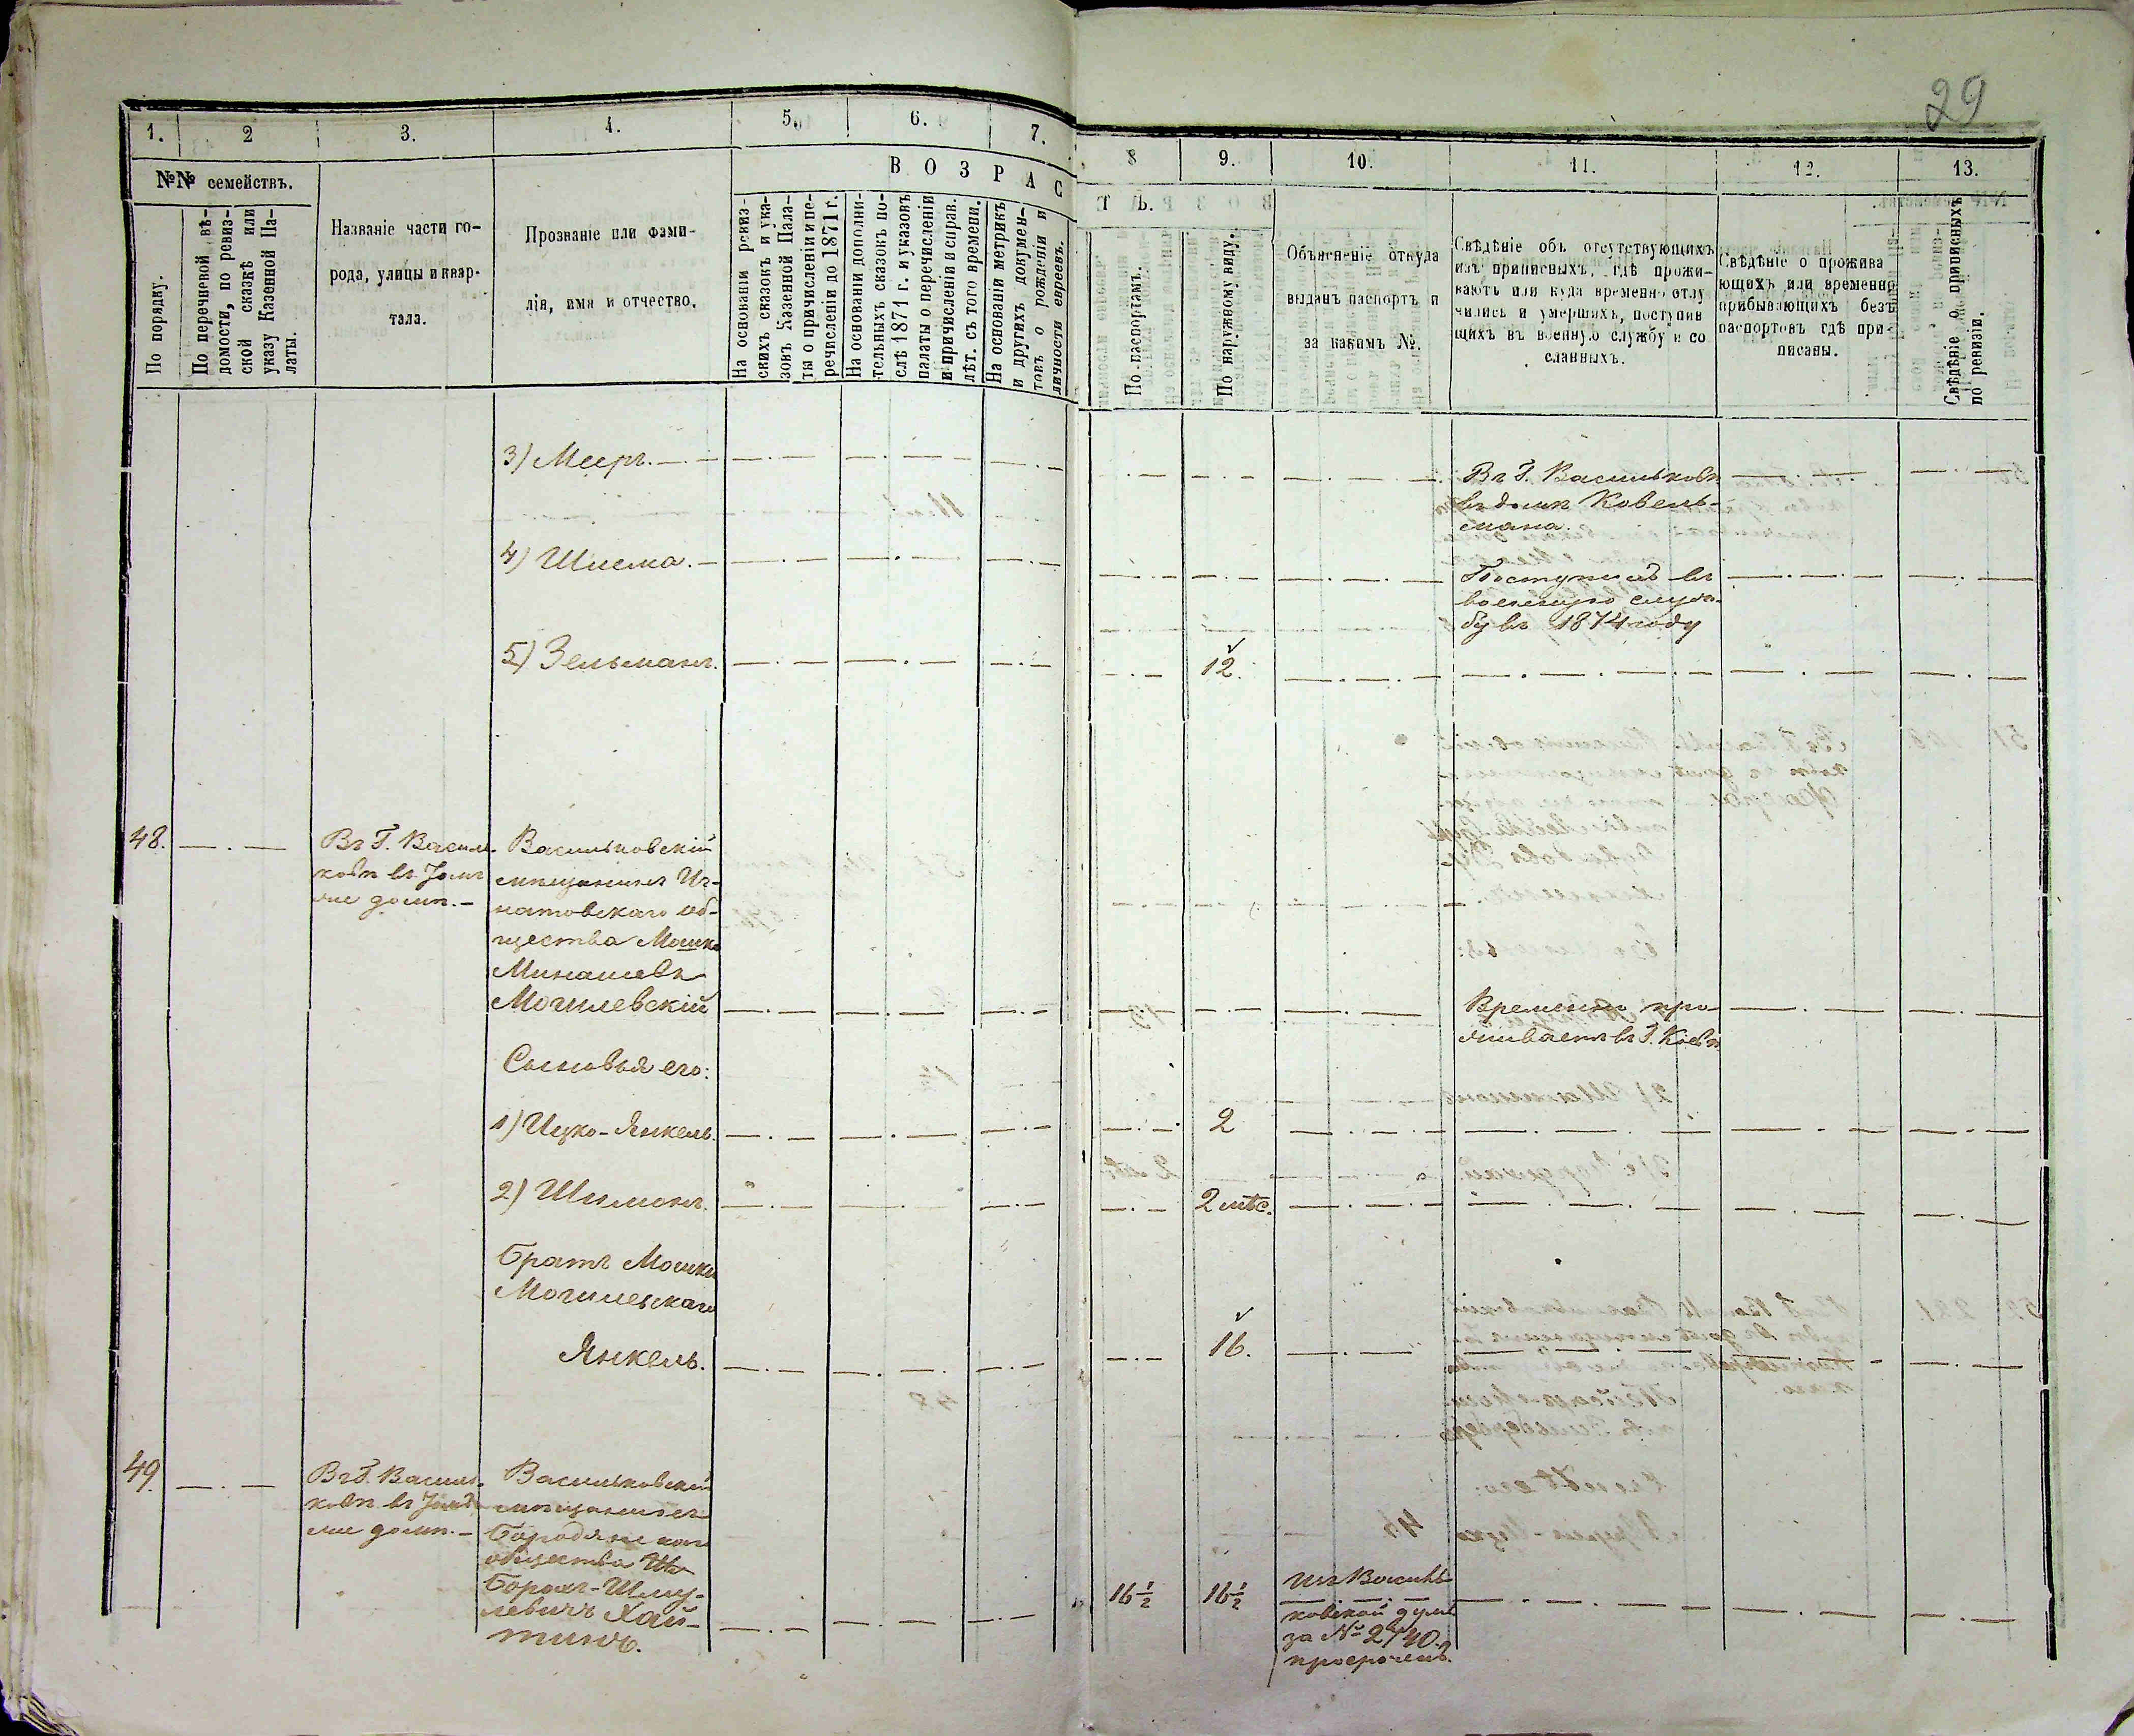 29
1.
2
3.
4.
5.
6.
7.
8
9.
10.
11.
12.
13.
№№ семействъ.
По порядку.
По перечневой вѣ-
домости, по ревиз-
ской сказкѣ или
указу Казенной Па-
латы.
Названіе части го-
рода, улицы и квар-
тала.
Прозваніе или фами-
лія, имя и отчество.
ВОЗРАС
ТЪ.
На основаніи ревиз-
скихъ сказокъ и ука-
зовъ Казенной Пала-
ты о причисленіи и пе-
речисленіи до 1871 г.
На основаніи дополни-
тельныхъ сказокъ по-
слѣ 1871 г. и указовъ
палаты о перечисленіи
и причисленіи и справ.
лѣт. съ того времени.
На основаніи метрикъ
и другихъ докумен-
товъ о рожденіи и
личности евреевъ.
По паспортамъ.
По наружному виду.
Объясненіе откуда
выданъ паспортъ и
за какимъ №.
Свѣдѣніе объ отсутствующихъ
изъ приписныхъ, гдѣ прожи-
ваютъ или куда временно отлу
чились и умершихъ, поступив
щихъ въ военную службу и со
сланныхъ.
Свѣдѣніе о прожива
ющихъ или временно
прибывающихъ безъ
паспортовъ гдѣ при-
писаны.
Свѣдѣніе о приписныхъ
по ревизіи.
3) Мееръ.
Въ Г. Васильковѣ
въ домѣ Ковель-
мана.
4) Шлема.
Поступилъ въ
военную служ-
бу въ 1874 году
5) Зельманъ.
12.
48.
Въ Г. Василь-
ковѣ въ
домѣ.
Васильковскій
мѣщанинъ Иг-
натовскаго об-
щества Мошко
Минашевъ
Могилевскій
Временно про-
живаетъ въ Г. Кіевѣ
Сыновья его:
1) Ицко-Янкель.
2
2) Шимонъ.
2 мѣс.
Братъ Мошки
Могилевскаго
Янкель.
16.
49.
Въ Г. Василь-
ковѣ въ
домѣ.
Васильковскій
мѣщанинъ
Бородянскаго
общества
Борохъ-Шму-
левичъ Хай-
тинъ.
16½
16½
изъ Василь-
ковской думы
за № 2740.
просроченъ.